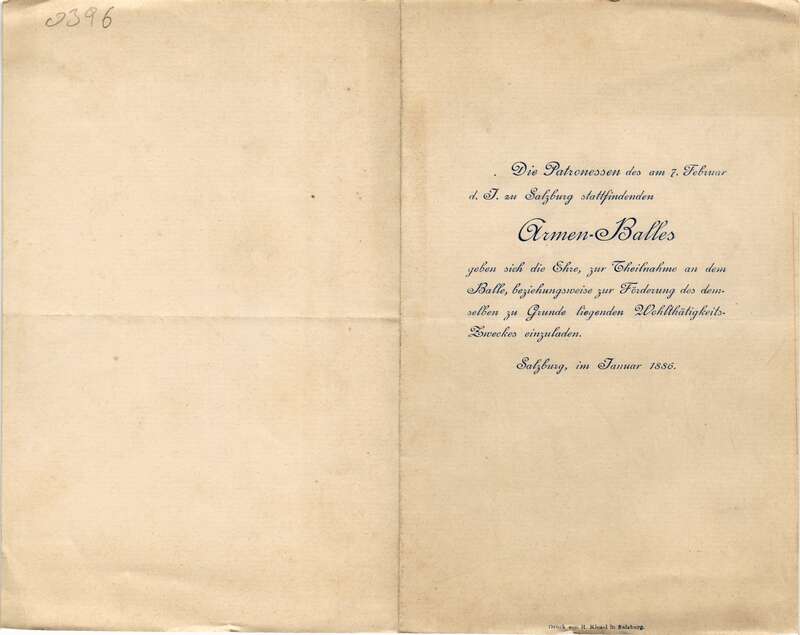 0396
Die Patronessen des am 7. Februar
d. J. zu Salzburg stattfindenden
Armen-Balles
geben sich die Ehre, zur Theilnahme an dem
Balle, beziehungsweise zur Förderung des dem-
selben zu Grunde liegenden Wohlthätigkeits-
Zweckes einzuladen.
Salzburg, im Januar 1886.
Druck von R. Kiesel in Salzburg.